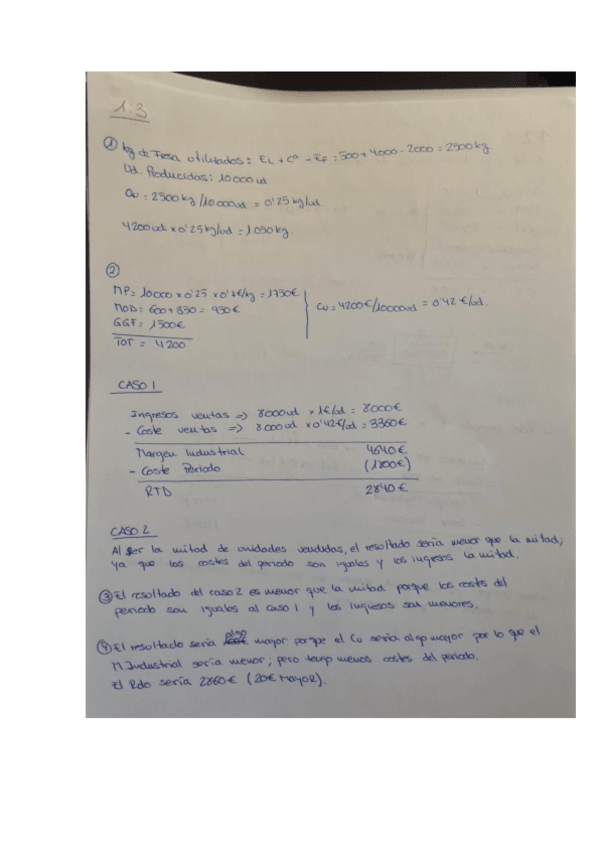 1.3
① kg de Fresa utilizados: Ei + Cª - EF = 500 + 4000 - 2000 = 2500 kg.
Ud. Producidas: 10000 ud
Qu = 2500 kg / 10000 ud = 0'25 kg/ud
4200 ud x 0'25 kg/ud = 1050 kg.
②
MP = 10000 x 0'25 x 0'7 €/kg = 1750€
MOD = 600 + 350 = 950€
GGF = 1500€
TOT = 4200
Cu = 4200€/10000ud = 0'42 €/ud.
CASO 1
Ingresos ventas => 8000ud x 1€/ud = 8000€
- Coste ventas => 8000ud x 0'42€/ud = 3360€
Margen Industrial 4640€
- Coste Periodo (1800€)
RTD 2840€
CASO 2
Al ser la mitad de unidades vendidas, el resultado sería menor que la mitad,
ya que los costes del periodo son iguales y los ingresos la mitad.
③ El resultado del caso 2 es menor que la mitad porque los costes del
periodo son iguales al caso 1 y los ingresos son menores.
④ El resultado sería algo mayor porque el Cu sería algo mayor por lo que el
M Industrial sería menor, pero tengo menos costes del periodo.
El Rdo sería 2860€ (20€ MAYOR).